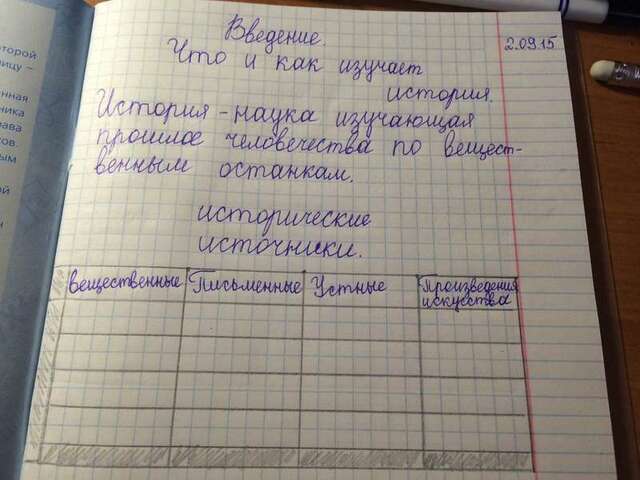 Введение.
2.09.15
Что и как изучает
история.
История - наука изучающая
прошлое человечества по вещест-
венным останкам.
исторические
источники.
Вещественные Письменные Устные Произведения
искусства
оторой
ицу –
нная
ника
ава
тов.
ым
ой